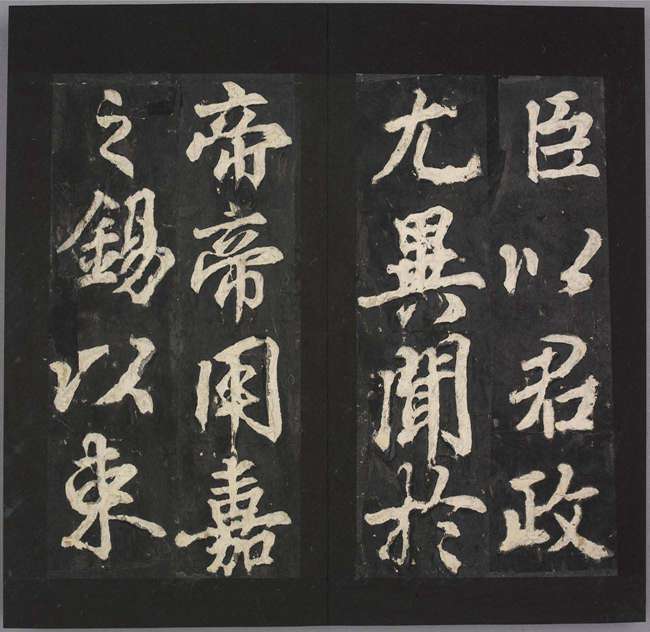 臣以君政
尤異聞於
帝帝用嘉
之錫以束